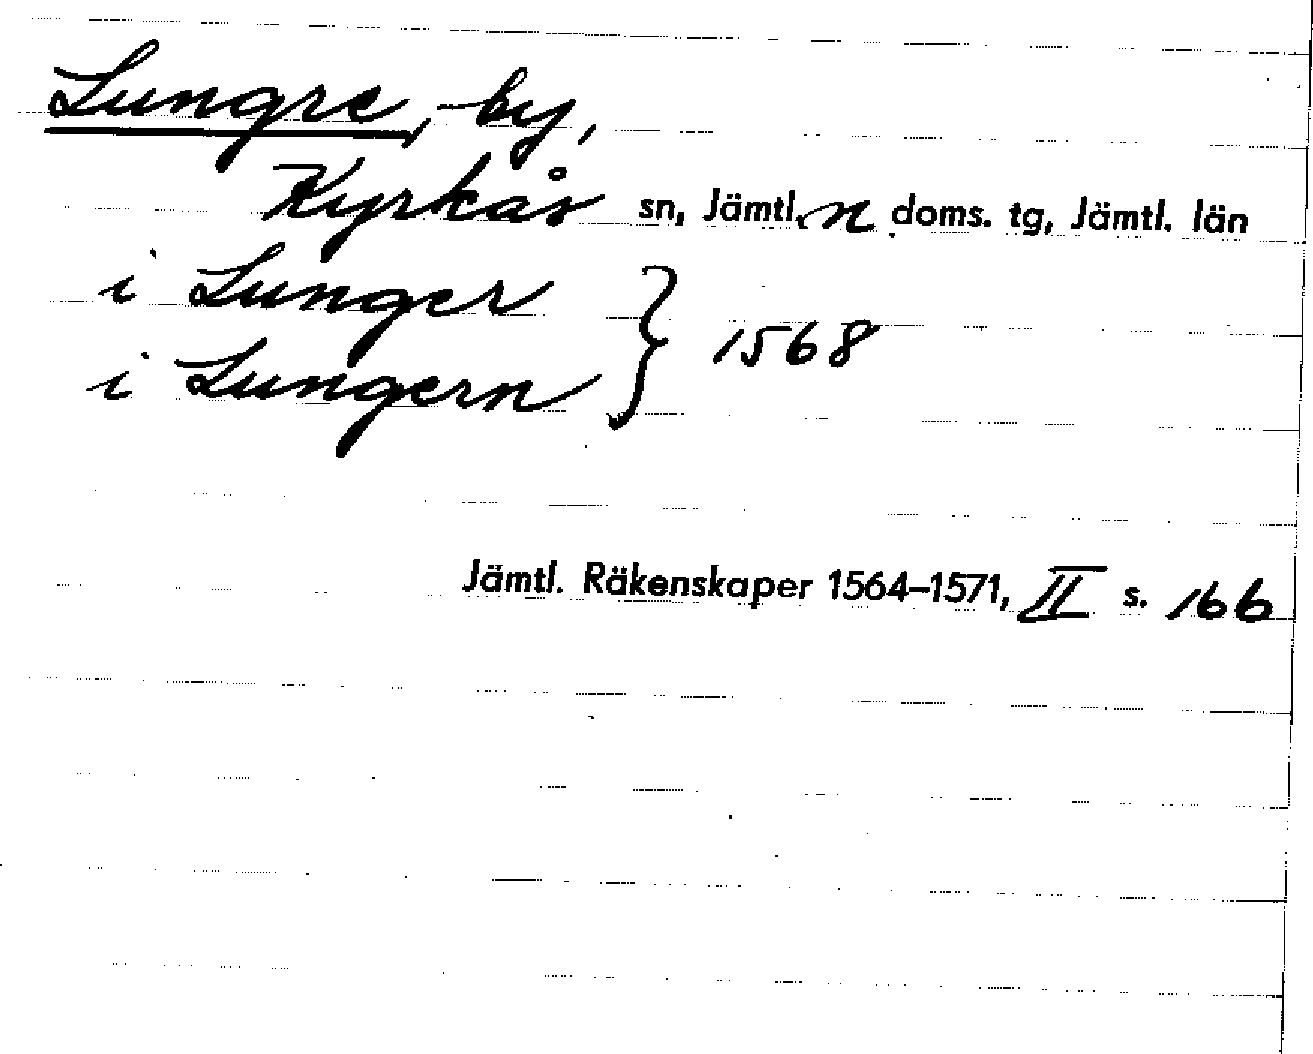 Lungre, by,
Kyrkås sn, Jämtl. n doms. tg, Jämtl. län
i Lunger } 1568
i Lungern
Jämtl. Räkenskaper 1564–1571, II s. 166